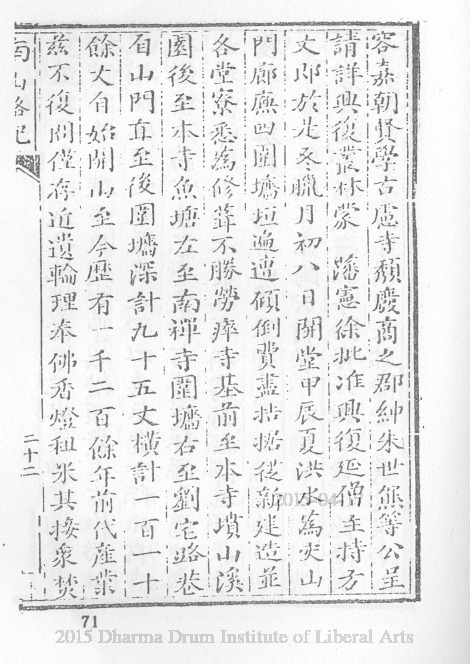 容嘉朝督學古慮寺頹廢商之郡紳朱世熊等公呈
請詳興復叢林蒙　藩憲徐批准興復延僧主持方
丈即於是冬臘月初八日開堂甲辰夏洪水為災山
門廊廡四圍墻垣遍遭傾倒費盡拮据從新建造並
各堂寮悉為修葺不勝勞瘁寺基前至本寺墳山溪
園後至本寺魚塘左至南禪寺圍墻右至劉宅路巷
自山門直至後圍墻深計九十五丈橫計一百一十
餘丈自始開山至今歷有一千二百餘年前代產業
茲不復開僅存近遺輪理奉佛香燈租米其接眾焚
南山畧記
二十二
71
2015 Dharma Drum Institute of Liberal Arts